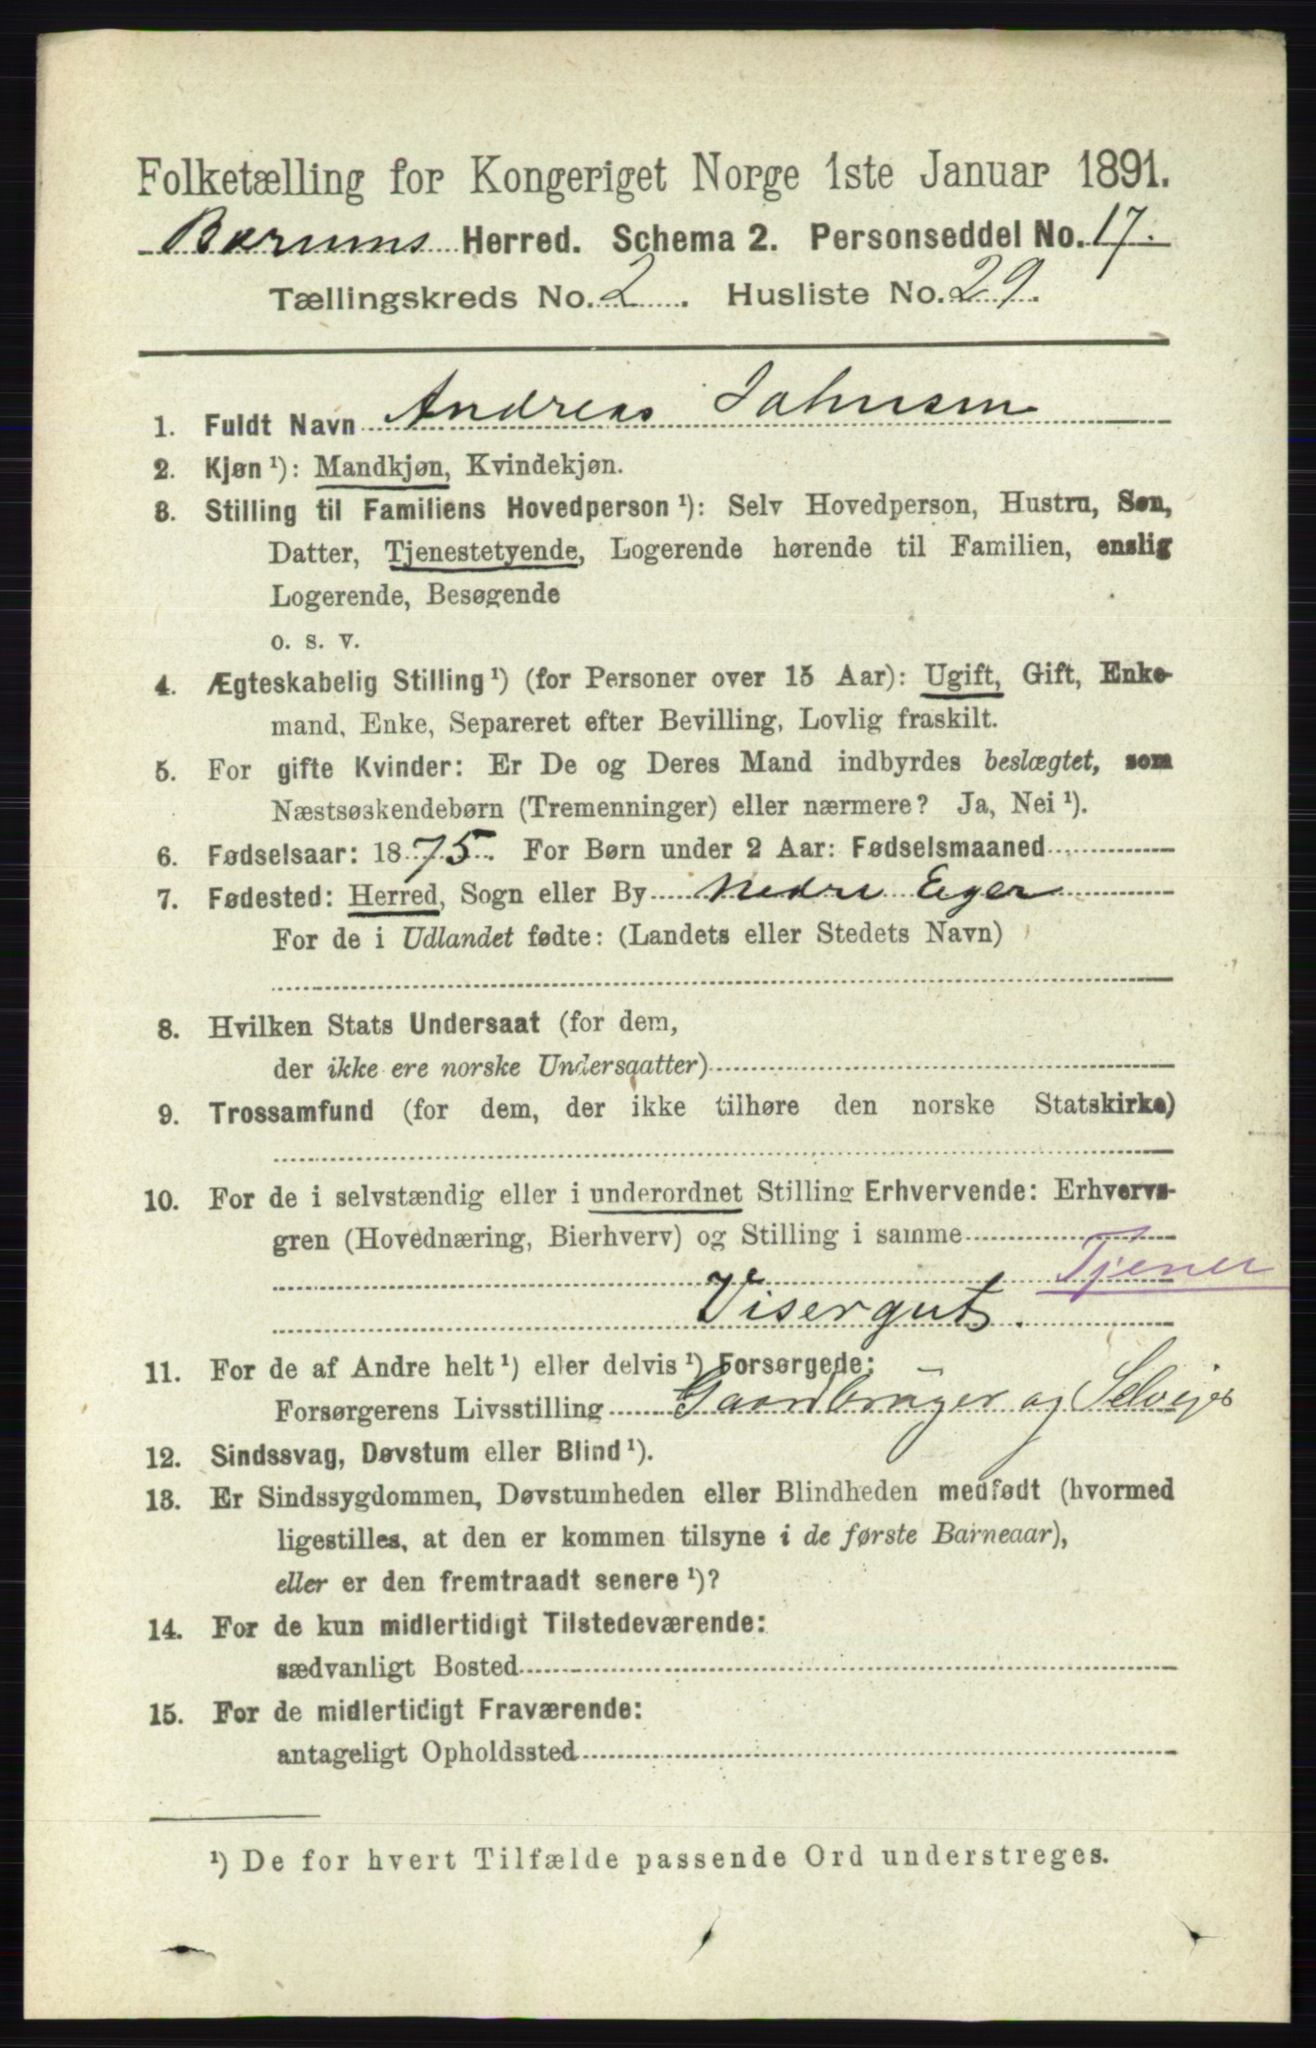 Folketælling for Kongeriget Norge 1ste Januar 1891.
Bærums Herred. Schema 2. Personseddel No. 17.
Tællingskreds No. 2. Husliste No. 29.
1. Fuldt Navn Andreas Johnsen
2. Kjøn ¹): Mandkjøn, Kvindekjøn.
3. Stilling til Familiens Hovedperson ¹): Selv Hovedperson, Hustru, Søn,
Datter, Tjenestetyende, Logerende hørende til Familien, enslig
Logerende, Besøgende
o. s. v.
4. Ægteskabelig Stilling ¹) (for Personer over 15 Aar): Ugift, Gift, Enke-
mand, Enke, Separeret efter Bevilling, Lovlig fraskilt.
5. For gifte Kvinder: Er De og Deres Mand indbyrdes beslægtet, som
Næstsøskendebørn (Tremenninger) eller nærmere? Ja, Nei ¹).
6. Fødselsaar: 1875. For Børn under 2 Aar: Fødselsmaaned
7. Fødested: Herred, Sogn eller By Nedre Eger
For de i Udlandet fødte: (Landets eller Stedets Navn)
8. Hvilken Stats Undersaat (for dem,
der ikke ere norske Undersaatter)
9. Trossamfund (for dem, der ikke tilhøre den norske Statskirke)
10. For de i selvstændig eller i underordnet Stilling Erhvervende: Erhvervs-
gren (Hovednæring, Bierhverv) og Stilling i samme
Tjener
Visergut.
11. For de af Andre helt ¹) eller delvis ¹) Forsørgede:
Forsørgerens Livsstilling Gaardbruger og Selveier
12. Sindssvag, Døvstum eller Blind ¹).
13. Er Sindssygdommen, Døvstumheden eller Blindheden medfødt (hvormed
ligestilles, at den er kommen tilsyne i de første Barneaar),
eller er den fremtraadt senere ¹)?
14. For de kun midlertidigt Tilstedeværende:
sædvanligt Bosted
15. For de midlertidigt Fraværende:
antageligt Opholdssted
¹) De for hvert Tilfælde passende Ord understreges.